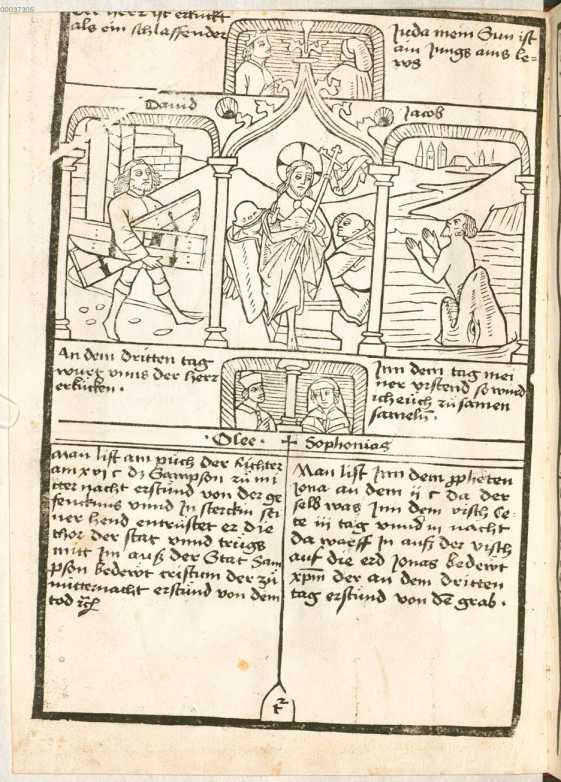 00037305
Der herr ist erkückt
als ein schlaffender
Juda mein Sun ist
ain Jungs ains le-
ws
David
Jacob
An dem dritten tag
würt vnns der herr
erkücken.
Jnn dem tag mei
ner vrstend so würd
ich eüch zü samen
sameln.
Osee.
Sophonias
Man list am püch der Richter
am xvi c dz Sampson zü mi
tter nacht erstünd von der ge
fencknus vnnd Jn sterckin sei
ner hend entrüstet er die
thor der stat vnnd trügs
mitt Jm auß der Stat Sam
pson bedewt cristum der zü
mitternacht erstünd von dem
tod
Man list Jnn dem propheten
Jona an dem ii c da der
selb was Jnn dem visch le-
te iii tag vnnd iii nacht
da warff in auß der visch
auf die erd Jonas bedewt
xpm der an dem dritten
tag erstünd von de grab.